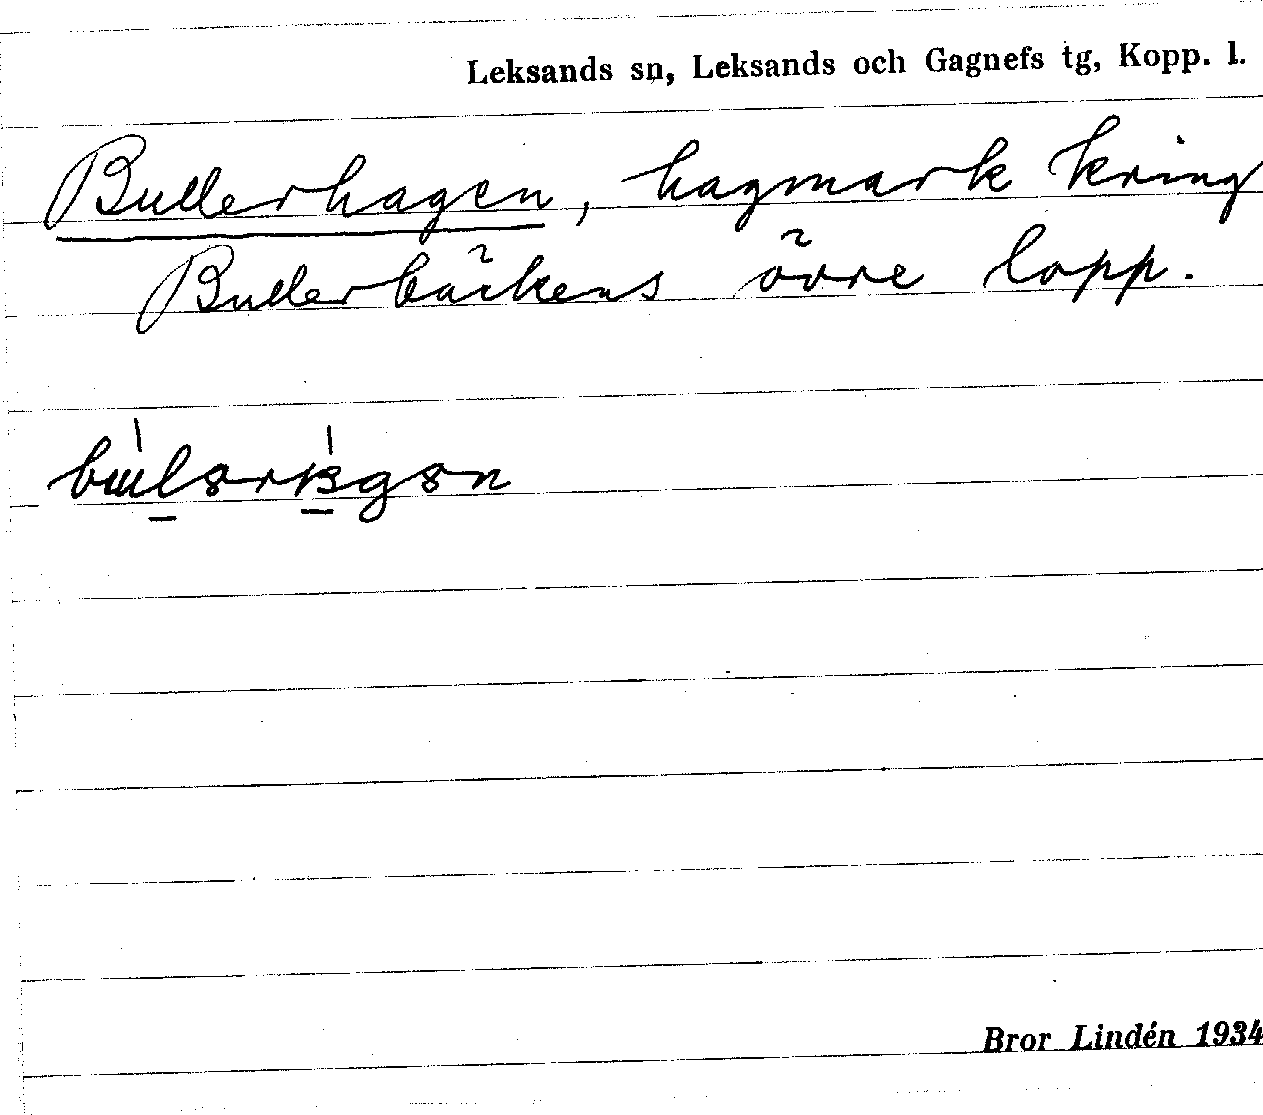 Leksands sn, Leksands och Gagnefs tg, Kopp. l.
Bullerhagen, hagmark kring
Bullerbäckens övre lopp.
Bror Lindén 1934